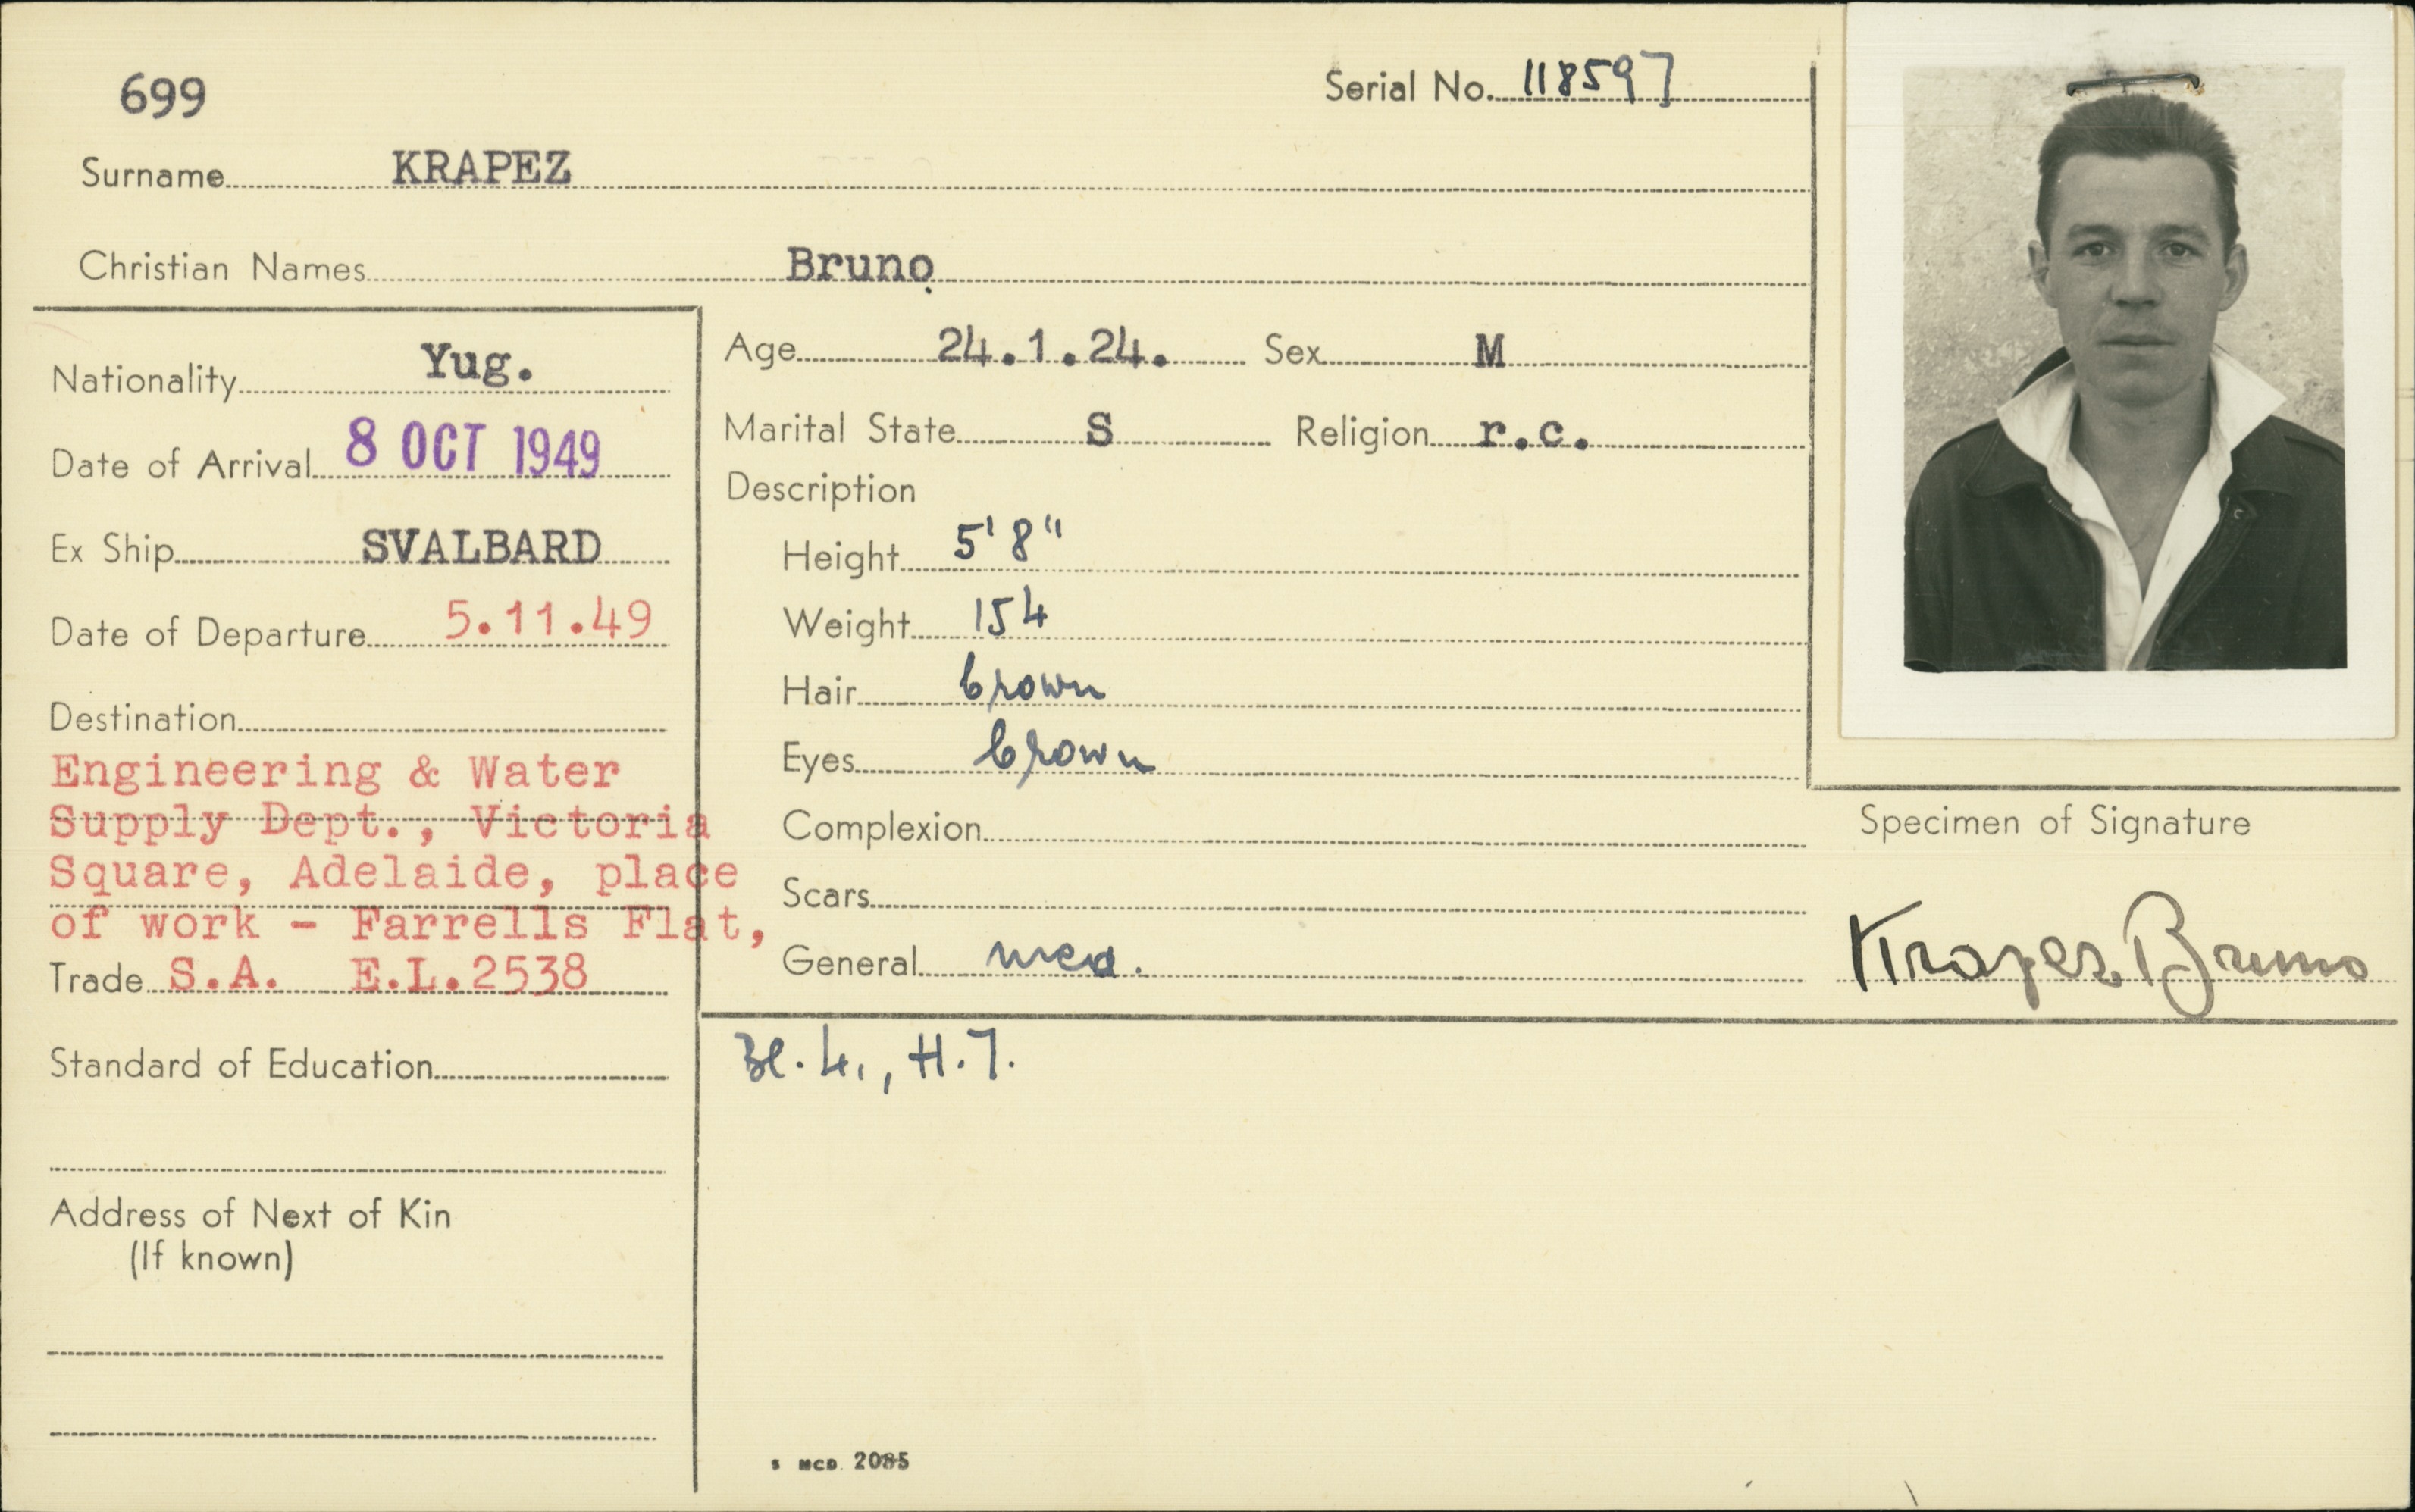 699
Serial No. 118597
Surname KRAPEZ
Christian Names Bruno
Nationality Yug.
Date of Arrival 8 OCT 1949
Ex Ship SVALBARD
Date of Departure 5.11.49
Destination
Engineering & Water
Supply Dept., Victoria
Square, Adelaide, place
of work - Farrells Flat,
Trade S.A. E.L.2538
Standard of Education
Address of Next of Kin
(If known)
Age 24.1.24. Sex M
Marital State S Religion r.c.
Description
Height 5'8"
Weight 154
Hair brown
Eyes brown
Complexion
Scars
General med.
Specimen of Signature
Krapez Bruno
Bl. 4., H.7.
S MCD 2085